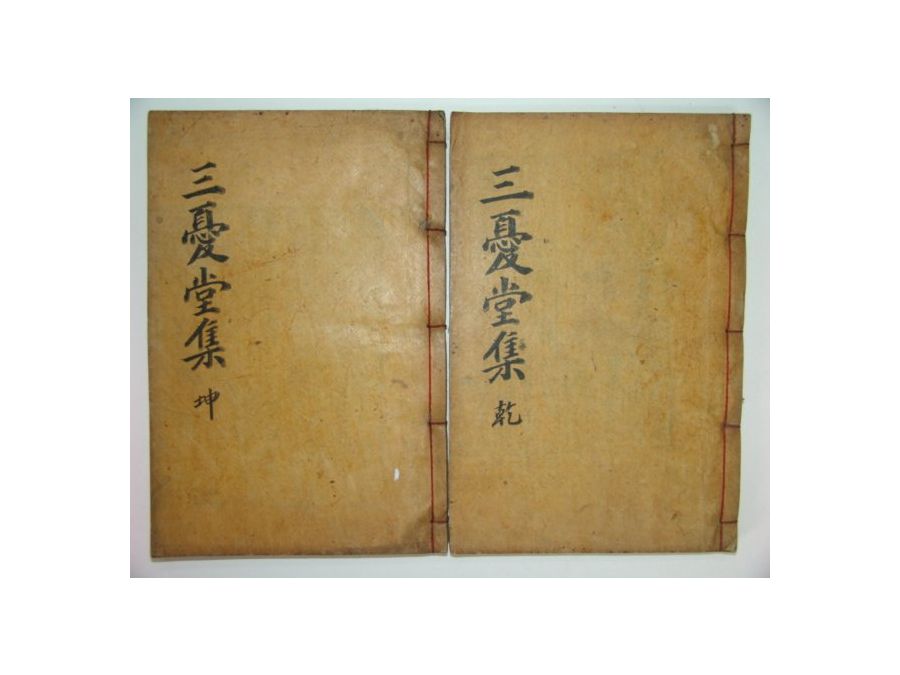 三憂堂集 乾
三憂堂集 坤